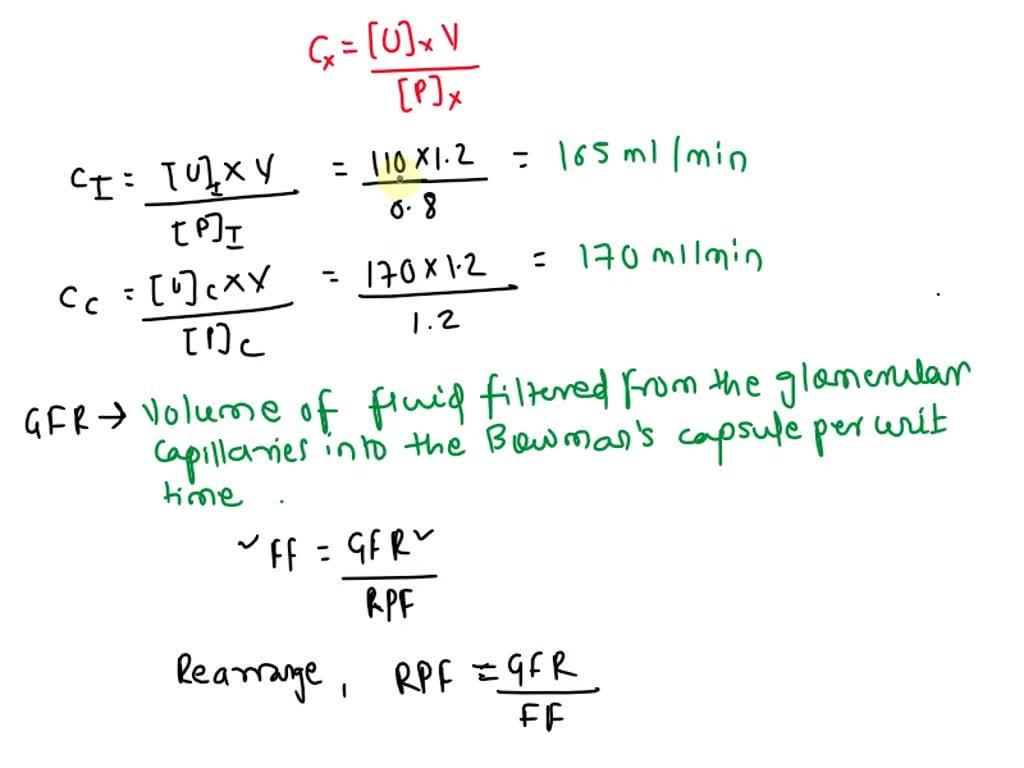 Cx = [U]x V / [P]x
CI = [U]I X V / [P]I = 110 X 1.2 / 0.8 = 165 ml/min
Cc = [U]c X V / [P]c = 170 X 1.2 / 1.2 = 170 ml/min
GFR → Volume of fluid filtered from the glomerular
capillaries into the Bowman's capsule per unit
time .
✓ FF = GFR ✓ / RPF
Rearrange, RPF = GFR / FF